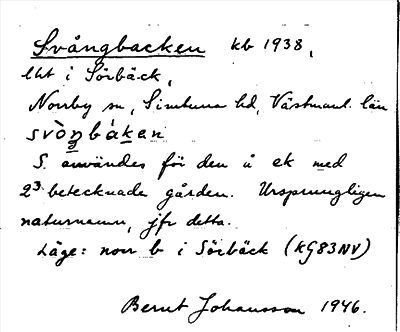 Svångbacken kb 1938,
lht i Sörbäck,
Norrby sn, Simtuna hd, Västmanl. län
svòŋbàkan
S. användes för den å ek med
2³ betecknade gården. Ursprungligen
naturnamn, jfr detta.
Läge: norr b i Sörbäck (KG83NV)
Bernt Johansson 1946.